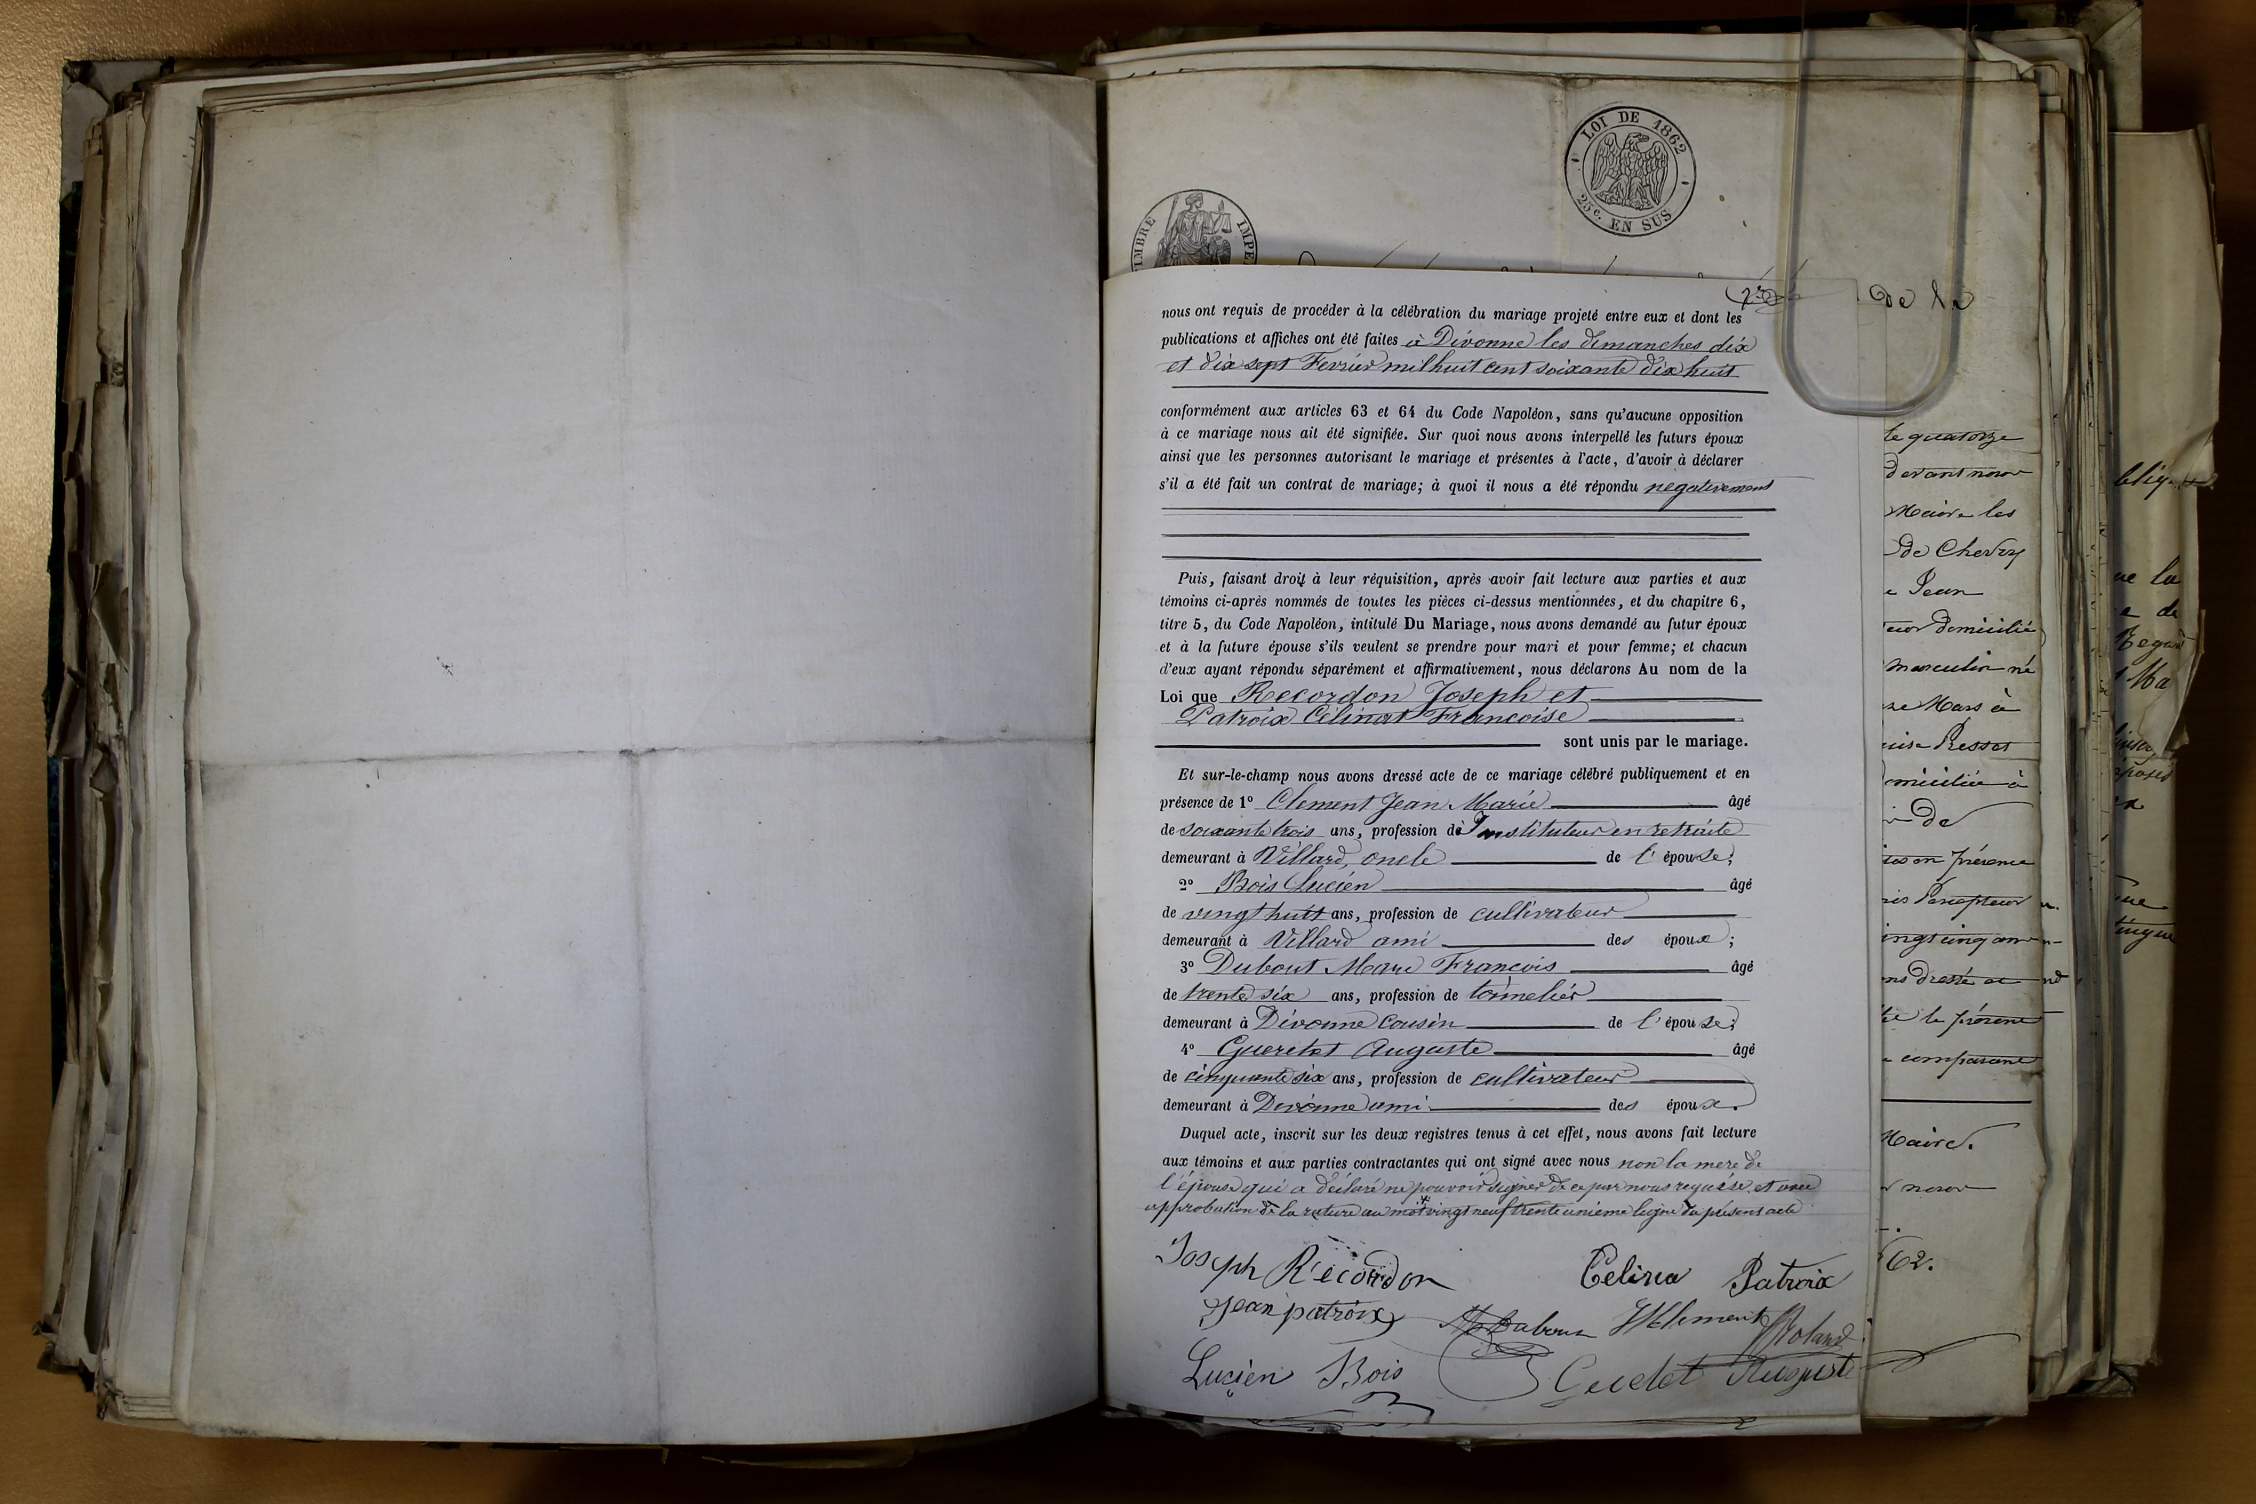 LOI DE 1862
25c. EN SUS
TIMBRE IMPE
nous ont requis de procéder à la célébration du mariage projeté entre eux et dont les
publications et affiches ont été faites à Divonne les dimanches dix
et dix sept Fevrier mil huit cent soixante dix huit
conformément aux articles 63 et 64 du Code Napoléon, sans qu'aucune opposition
à ce mariage nous ait été signifiée. Sur quoi nous avons interpellé les futurs époux
ainsi que les personnes autorisant le mariage et présentes à l'acte, d'avoir à déclarer
s'il a été fait un contrat de mariage; à quoi il nous a été répondu negativement
Puis, faisant droit à leur réquisition, après avoir fait lecture aux parties et aux
témoins ci-après nommés de toutes les pièces ci-dessus mentionnées, et du chapitre 6,
titre 5, du Code Napoléon, intitulé Du Mariage, nous avons demandé au futur époux
et à la future épouse s'ils veulent se prendre pour mari et pour femme; et chacun
d'eux ayant répondu séparément et affirmativement, nous déclarons Au nom de la
Loi que Recordon Joseph et
Patroix Célinat Francoise
sont unis par le mariage.
Et sur-le-champ nous avons dressé acte de ce mariage célébré publiquement et en
présence de 1° Clement Jean Marie âgé
de soixante trois ans, profession de Instituteur en retraite
demeurant à Villard, oncle de l'épouse;
2° Bois Lucien âgé
de vingt huit ans, profession de cultivateur
demeurant à Villard ami des époux;
3° Dubout Marc François âgé
de trente six ans, profession de tonnelier
demeurant à Divonne Cousin de l'épouse;
4° Gueretet Auguste âgé
de cinquante six ans, profession de cultivateur
demeurant à Divonne ami des époux.
Duquel acte, inscrit sur les deux registres tenus à cet effet, nous avons fait lecture
aux témoins et aux parties contractantes qui ont signé avec nous non la mere de
l'épouse qui a déclaré ne pouvoir signer de ce par nous requise et avec
approbation de la rature au mot vingt neuf trente unieme ligne du présent acte
Joseph Recordon Celina Patroix
jean patroix Clement Roland
Lucien Bois Auguste
de la
le quatorze
devant nous
Maire les
de Chevry
Jean
domicilié
masculin né
Mars à
domiciliée à
de
en présence
Percepteur
dressé
le présent
comparant
Maire.
nous
62.